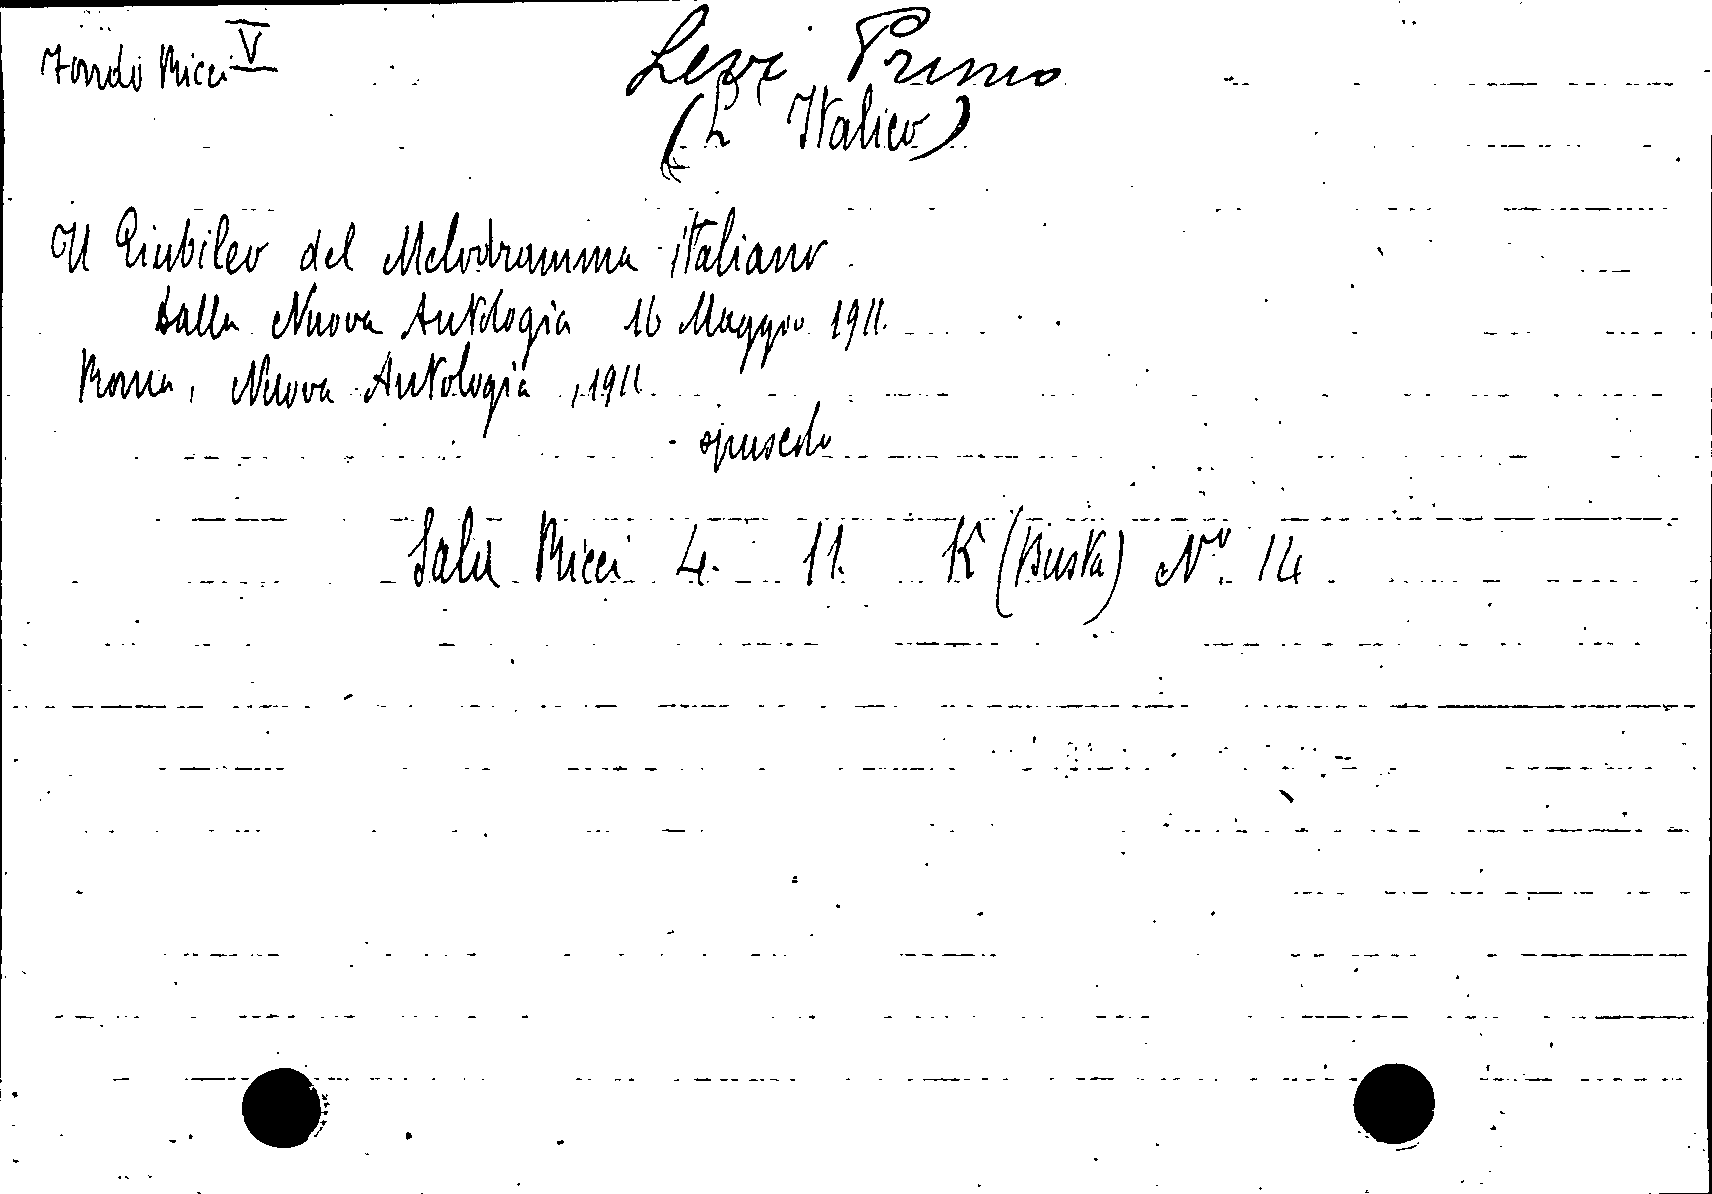 Fondo Ricci V
Levi Primo
(L' Italico)
Il Giubileo del Melodramma italiano
Dalla Nuova Antologia 16 Maggio 1911.
Roma, Nuova Antologia, 1911
opuscolo
Sala Ricci 4. 11. K (Busta) Nº 14